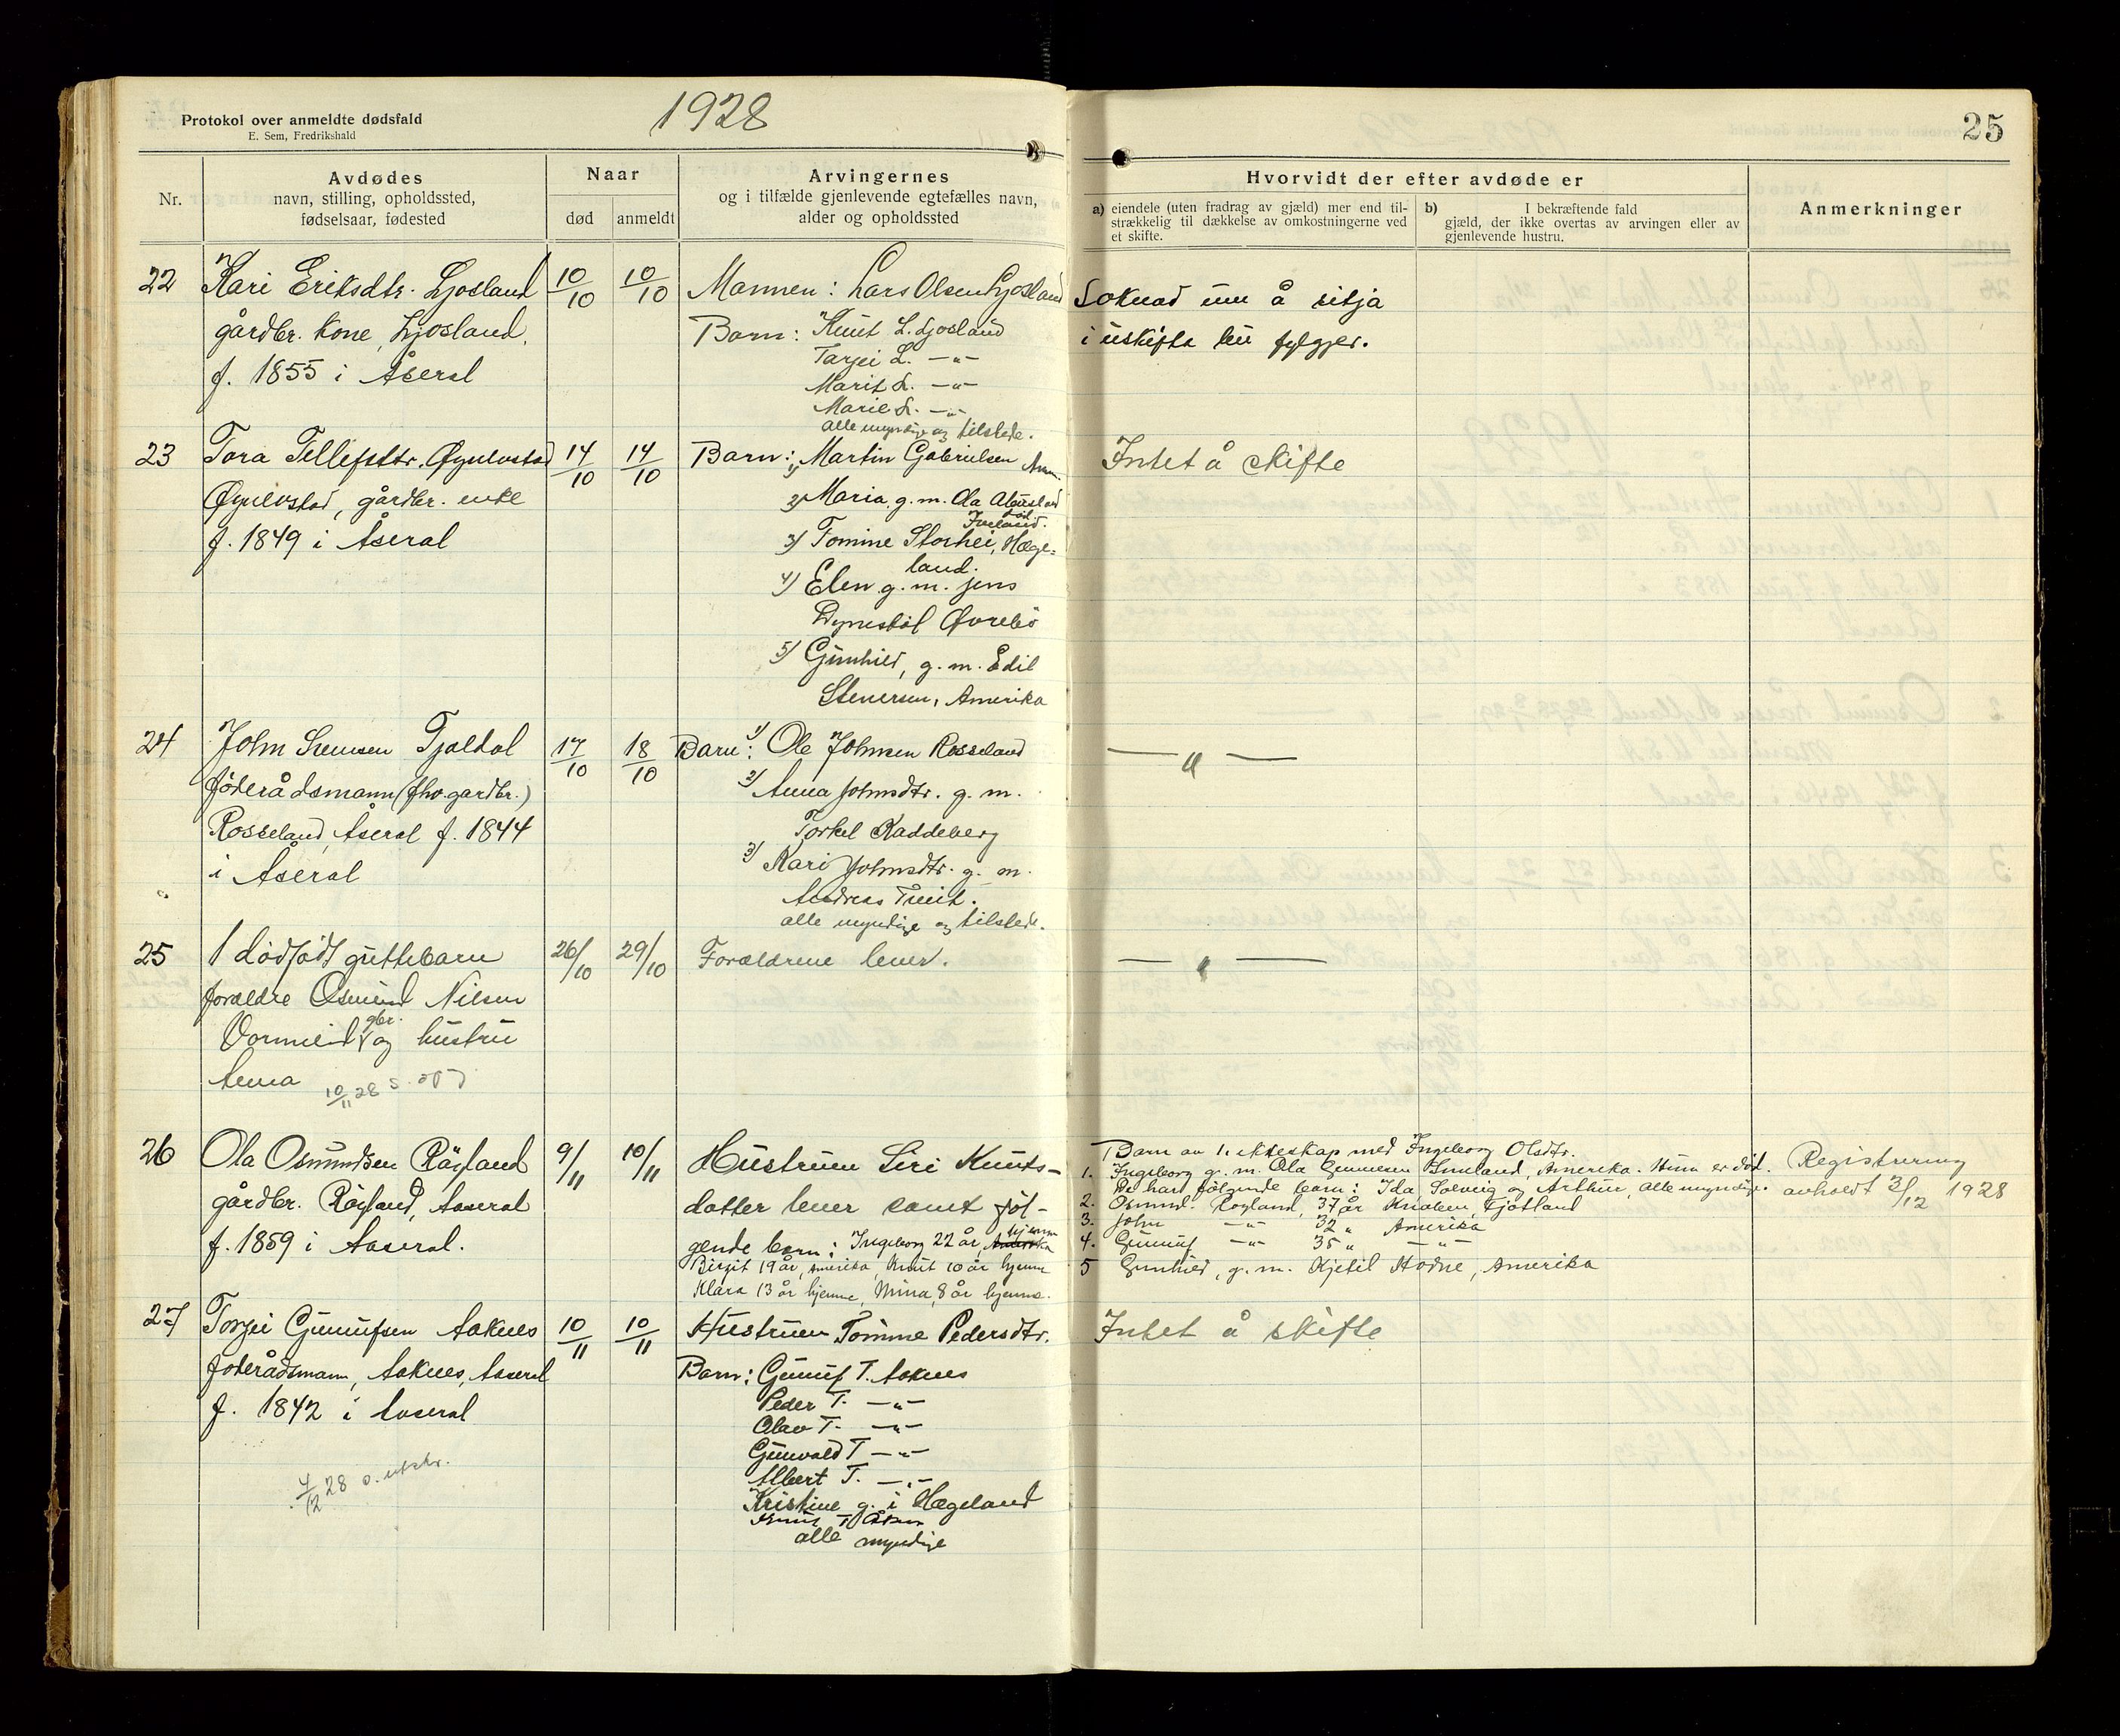 Protokol over anmeldte dødsfald
E. Sem, Fredrikshald
1928
25
Nr.
Avdødes
navn, stilling, opholdssted,
fødselsaar, fødested
Naar
død
anmeldt
Arvingernes
og i tilfælde gjenlevende egtefælles navn,
alder og opholdssted
Hvorvidt der efter avdøde er
a) eiendele (uten fradrag av gjæld) mer end til-
strækkelig til dækkelse av omkostningerne ved
et skifte.
b) I bekræftende fald
gjæld, der ikke overtas av arvingen eller av
gjenlevende hustru.
Anmerkninger
22 Kari Eriksdtr. Ljosland 10/10 10/10 Mannen: Lars Olsen Ljosland Soknad um å sitja
gårdbr. kone, Ljosland, Barn: Knut L. Ljosland i uskifta bu fylgjer.
f. 1855 i Åseral Tarjei L. —"—
Marit L. —"—
Marie L. —"—
alle myndige og tilstede.
23 Tora Tellefsdtr. Øynlvstad 14/10 14/10 Barn: 1) Martin Gabrielsen Intet å skifte
Øynlvstad, gårdbr. enke 2) Maria, g. m. Ola
f. 1849 i Åseral Iveland.
3) Tomine Storhei, Hæge=
land.
4) Elen g. m. Jens
Øvrebö
5) Gunhild, g. m. Edil
Stenersen, Amerika
24 John Svensen Tjaldal 17/10 18/10 Barn: 1) Ole Johnsen Rosseland —"—
föderådsmann (fhv. gardbr.) 2) Anna Johnsdtr. g. m.
Rosseland, Åseral f. 1844 Torkel Raddeberg
i Åseral 3) Kari Johnsdtr. g. m.
Andreas Tveit.
alle myndige og tilstede.
25 1 dödfödt guttebarn 26/10 29/10 Forældrene lever. —"—
forældre Osmund Nilsen
gbr.
Vormeid og hustru
Anna
10/11 28
26 Ola Osmundsen Röyland 9/11 10/11 Hustruen Siri Knuts- Barn av 1. ekteskap med Ingeborg Olsdtr. Registrering
gårdbr. Röyland, Aaseral datter lever samt föl- 1. Ingeborg g. m. Ola Gunnersen Amerika. Hun er död. avholdt 3/12 1928
De har fölgende barn: Ida, Solveig og Arthur, alle myndige.
f. 1859 i Aaseral. gende barn: Ingeborg 22 år, hjemme 2. Osmund Royland, 37 år Knaben, Fjotland
Birgit 19 år, Amerika, Knut 10 år hjemme 3. John —"— 32 " Amerika
Klara 13 år hjemme, Mina, 8 år hjemme. 4. Gunuf —"— 35 " —"—
5 Gunhild, g. m. Kjetil Hodne, Amerika
27 Torjei Gunufsen Aaknes 10/11 10/11 Hustruen Tomine Pedersdtr. Intet å skifte
foderådsmann, Aaknes, Aaseral Barn: Gunuf T. Aaknes
f. 1842 i Aaseral Peder T. —"—
Olav T. —"—
Gunvald T —"—
Albert T. —"—
4/12 28 s. utskr.
Kristine g. i Hægeland
Knut T
alle myndige